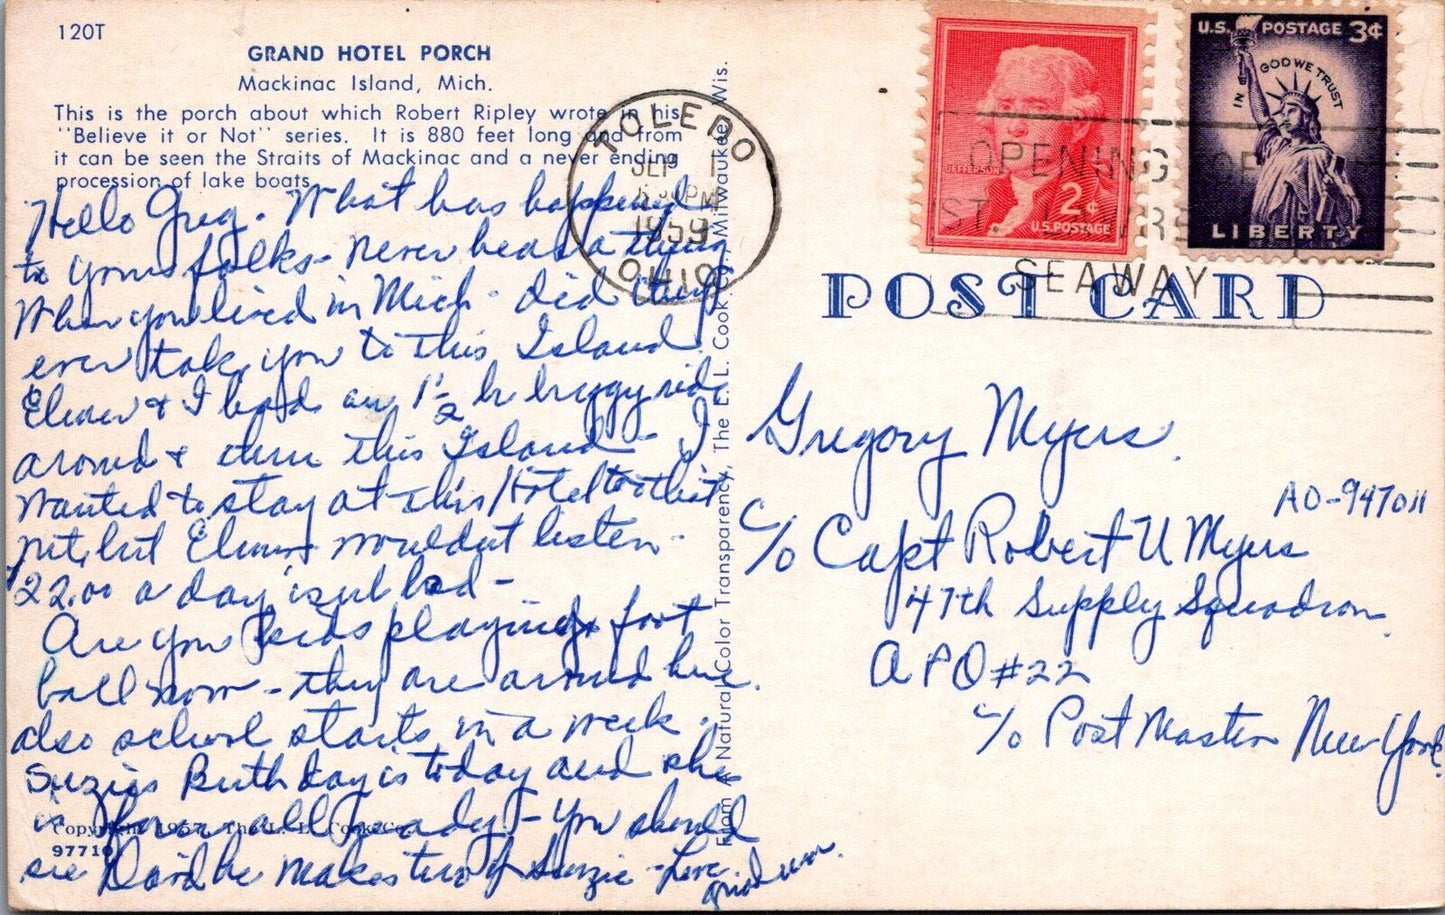 120T
GRAND HOTEL PORCH
Mackinac Island, Mich.
This is the porch about which Robert Ripley wrote in his
"Believe it or Not" series. It is 880 feet long and from
it can be seen the Straits of Mackinac and a never ending
procession of lake boats.
Hello Greg. What has happened
to your folks - never hear a thing
When you lived in Mich - did they
ever take you to this Island
Elmer & I had an 1½ hr buggy ride
around & thru this Island - I
wanted to stay at this Hotel
but Elmer wouldn't listen -
22.00 a day isn't bad -
Are you kids playing foot
ball now - they are around here.
also school starts in a week.
Suzies Birthday is today and she
is four all ready - You should
see David he makes two of Suzie - Love
Copyright 1957, The L. L. Cook Co.
97710
From Natural Color Transparency, The L. L. Cook Co., Milwaukee, Wis.
TOLEDO
SEP 1
PM
1959
OHIO
OPENING OF
ST. LAWRENCE
SEAWAY
JEFFERSON
2¢
U.S. POSTAGE
U.S. POSTAGE 3¢
IN GOD WE TRUST
LIBERTY
POST CARD
Gregory Myers.
AO-947011
c/o Capt Robert U Myers
47th Supply Squadron
APO #22
c/o Post Master New York.